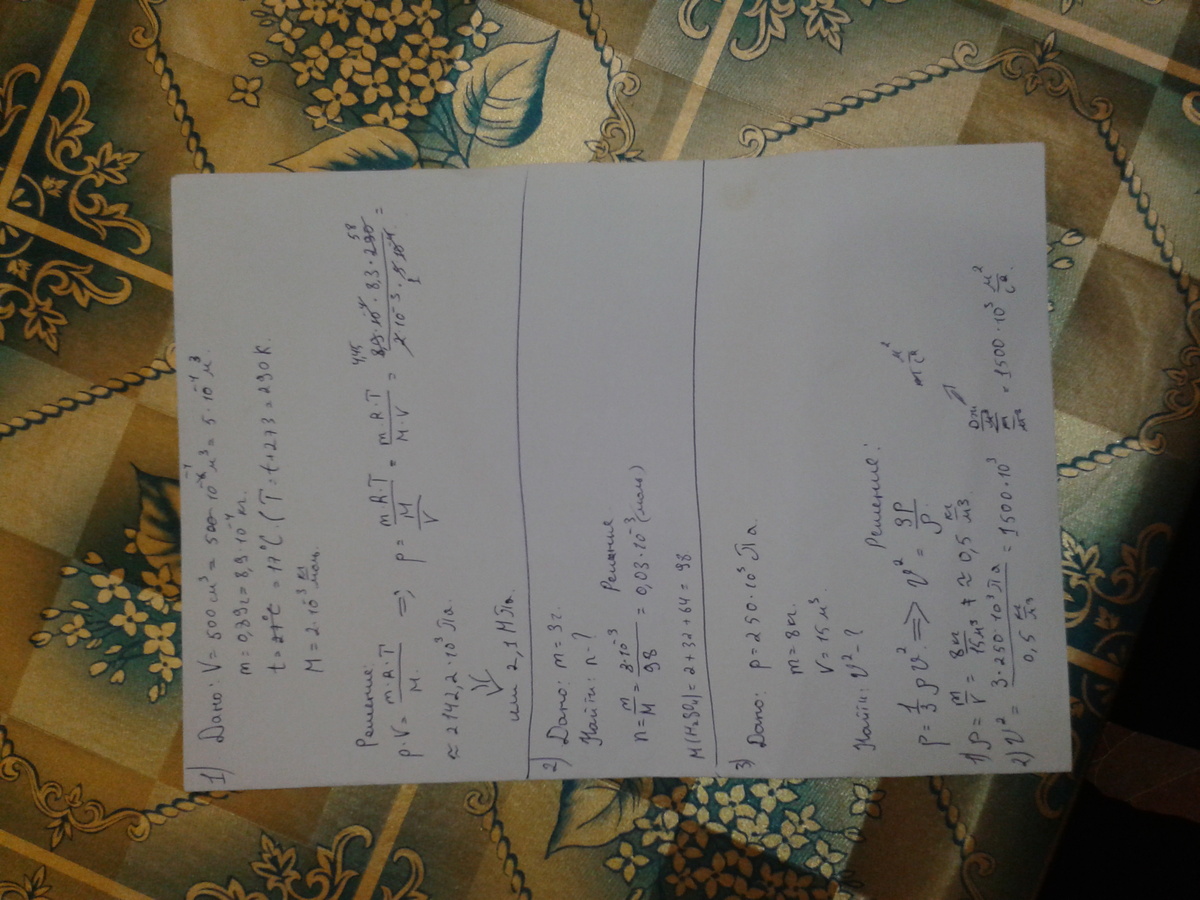 1) Дано: V = 500 см³ = 500·10⁻⁶ м³ = 5·10⁻⁴ м³
m = 0,89г = 8,9·10⁻⁴ кг.
t = 17°C (T = t+273 = 290К.
M = 2·10⁻³ кг/моль.
Решение:
p·V = m·R·T/M. => p = (m·R·T/M)/V = m·R·T/M·V = 8,9·10⁻⁴·8,3·290/2·10⁻³·5·10⁻⁴ =
4,45 58 1
≈ 2142,2·10³ Па.
или 2,1 МПа.
2) Дано: m = 3г.
Найти: n - ?
Решение
n = m/M = 3·10⁻³/98 = 0,03·10⁻³ (моль)
M(H₂SO₄) = 2+32+64 = 98
3) Дано: p = 250·10³ Па.
m = 8кг.
V = 15м³.
Найти: v² - ?
Решение:
p = 1/3 ρ v² => v² = 3p/ρ.
1) ρ = m/V = 8кг/15м³ ≈ 0,5 кг/м³
2) v² = 3·250·10³ Па/0,5 кг/м³ = 1500·10³ = 1500·10³ м²/с².